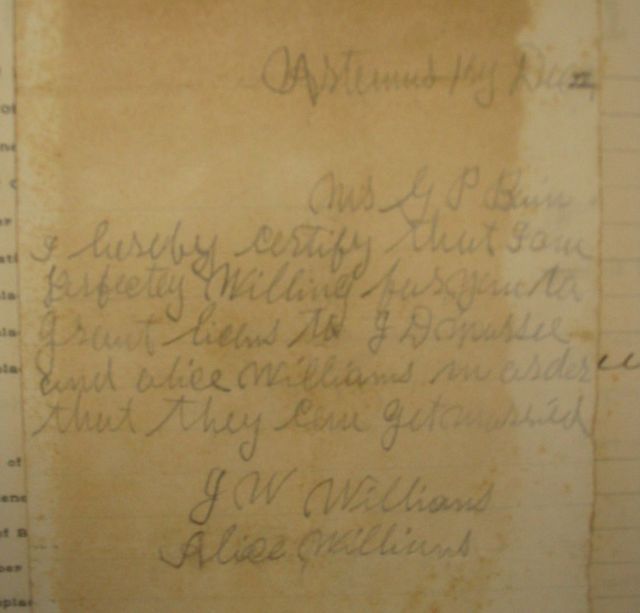 Artemus Ky Dec 22
Ms G P Bain
I hereby certify that I am
perfectey Willing for you to
grant licens to J D
and alice Williams in order
that they can get married
J W Williams
Alice Williams
of